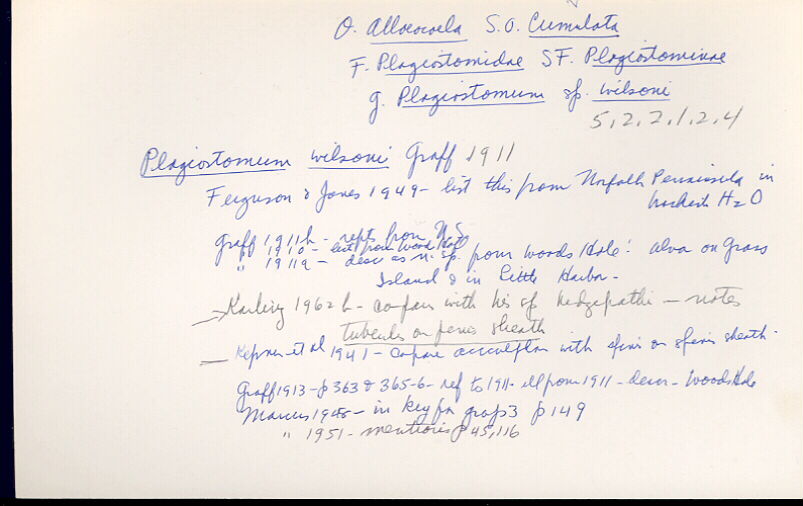 O. Alloeocoela S.O. Cumulata
F. Plagiostomidae SF. Plagiostominae
g. Plagiostomum sp. wilsoni
5, 2, 2, 1, 2, 4
Plagiostomum wilsoni Graff 1911
Ferguson & Jones 1949 - list this from Norfolk Peninsula in
brackish H2O
Graff 1911b - repts from U.S.
" 1910 - list from Woods Hole
" 1911a - descr as n. sp. from Woods Hole: ulva on Grass
Island & in Little Harbor -
Karling 1962b - compares with his sp hedgpethi - notes
tubercles on penis sheath
Kepner et al 1941 - with spines on penis sheath.
Graff 1913 - p 363 & 365-6 - ref to 1911 - ill from 1911 - descr - Woods Hole
Marcus 1948 - in key for group 3 p 149
" 1951 - mentions p 45, 116